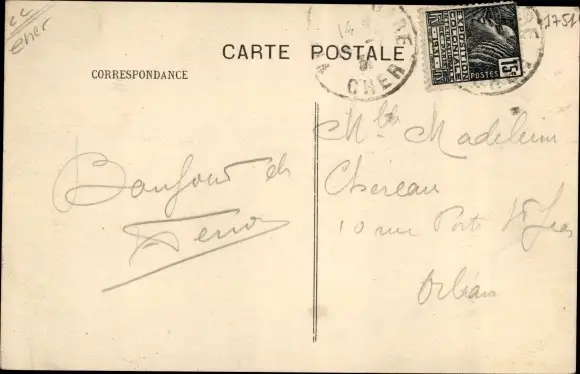 cc
cher
CARTE POSTALE
CORRESPONDANCE
14
CHER
EXPOSITION
COLONIALE
POSTES 15c
1751
Mlle Madeleine
Chereau
10 rue Porte St Jean
Orléans
Bonjour de